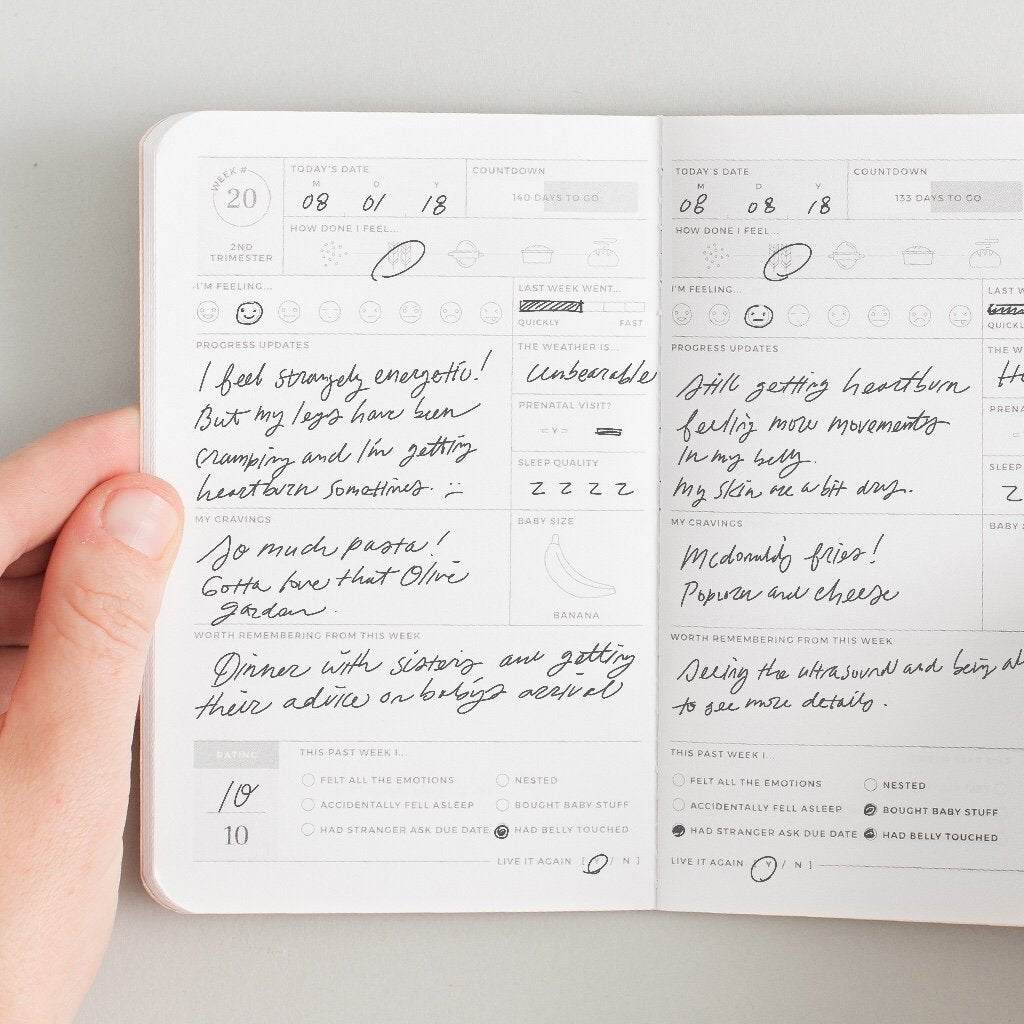 WEEK #
20
2ND
TRIMESTER
TODAY'S DATE
M D Y
08 01 18
COUNTDOWN
140 DAYS TO GO
HOW DONE I FEEL...
I'M FEELING...
LAST WEEK WENT...
QUICKLY FAST
PROGRESS UPDATES
I feel strangely energetic!
But my legs have been
cramping and I'm getting
heartburn sometimes. :(
THE WEATHER IS...
Unbearable
PRENATAL VISIT?
= Y =
SLEEP QUALITY
Z Z Z Z
MY CRAVINGS
So much pasta!
Gotta love that Olive
garden.
BABY SIZE
BANANA
WORTH REMEMBERING FROM THIS WEEK
Dinner with sisters and getting
their advice on baby's arrival
RATING
10
10
THIS PAST WEEK I...
FELT ALL THE EMOTIONS
NESTED
ACCIDENTALLY FELL ASLEEP
BOUGHT BABY STUFF
HAD STRANGER ASK DUE DATE
HAD BELLY TOUCHED
LIVE IT AGAIN [ Y / N ]
TODAY'S DATE
M D Y
08 08 18
COUNTDOWN
133 DAYS TO GO
HOW DONE I FEEL...
I'M FEELING...
LAST W
QUICKL
PROGRESS UPDATES
Still getting heartburn
feeling more movements
in my belly.
My skin are a bit dry.
THE W
PRENA
SLEEP
Z
MY CRAVINGS
Mcdonald's fries!
Popcorn and cheese
BABY S
WORTH REMEMBERING FROM THIS WEEK
Seeing the ultrasound and being ab
to see more details.
THIS PAST WEEK I...
FELT ALL THE EMOTIONS
NESTED
ACCIDENTALLY FELL ASLEEP
BOUGHT BABY STUFF
HAD STRANGER ASK DUE DATE
HAD BELLY TOUCHED
LIVE IT AGAIN [ Y / N ]